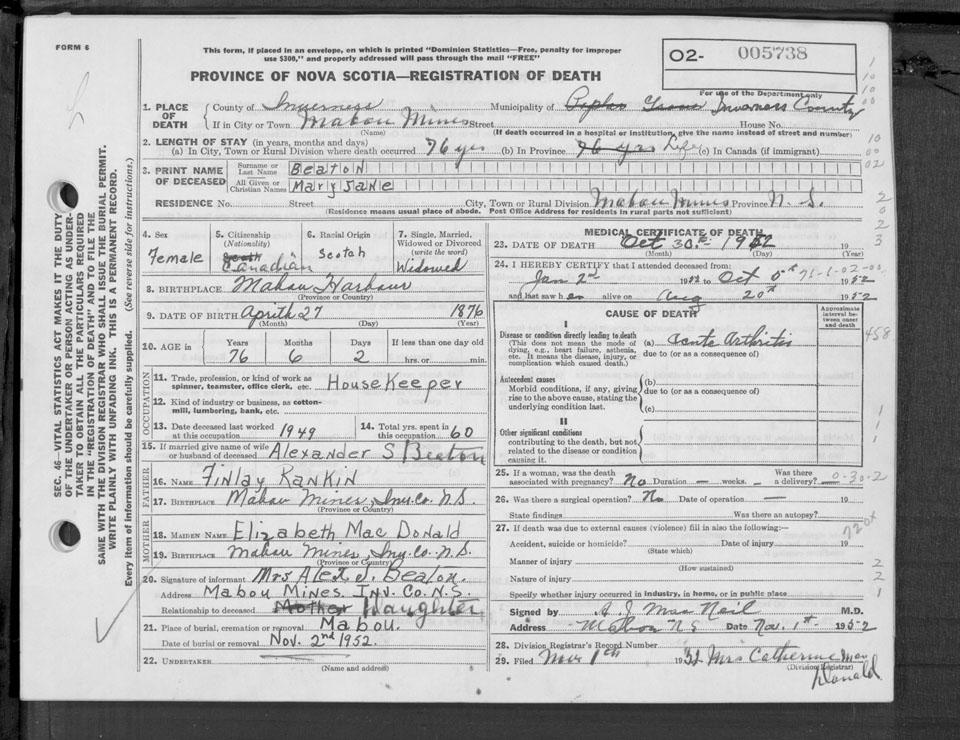 FORM 6
This form, if placed in an envelope, on which is printed "Dominion Statistics—Free, penalty for improper
use $300," and properly addressed will pass through the mail "FREE"
PROVINCE OF NOVA SCOTIA—REGISTRATION OF DEATH
02- 005738
For use of the Department only
SEC. 46—VITAL STATISTICS ACT MAKES IT THE DUTY
OF THE UNDERTAKER OR PERSON ACTING AS UNDER-
TAKER TO OBTAIN ALL THE PARTICULARS REQUIRED
IN THE "REGISTRATION OF DEATH" AND TO FILE THE
SAME WITH THE DIVISION REGISTRAR WHO SHALL ISSUE THE BURIAL PERMIT.
WRITE PLAINLY WITH UNFADING INK. THIS IS A PERMANENT RECORD.
Every item of information should be carefully supplied. (See reverse side for instructions.)
1. PLACE OF DEATH County of Inverness Municipality of Inverness County
If in City or Town Mabou Mines Street House No.
(Name) (If death occurred in a hospital or institution, give the name instead of street and number)
2. LENGTH OF STAY (in years, months and days)
(a) In City, Town or Rural Division where death occurred 76 yrs (b) In Province 76 yrs Life (c) In Canada (if immigrant)
3. PRINT NAME OF DECEASED Surname or Last Name Beaton
All Given or Christian Names Mary Jane
RESIDENCE No. Street City, Town or Rural Division Mabou Mines Province N. S.
(Residence means usual place of abode. Post Office Address for residents in rural parts not sufficient)
4. Sex Female
5. Citizenship (Nationality) Scotch Canadian
6. Racial Origin Scotch
7. Single, Married, Widowed or Divorced (write the word) Widowed
8. BIRTHPLACE Mabou Harbour
(Province or Country)
9. DATE OF BIRTH April 27 1876
(Month) (Day) (Year)
10. AGE in Years 76 Months 6 Days 2 If less than one day old hrs. or min.
OCCUPATION
11. Trade, profession, or kind of work as spinner, teamster, office clerk, etc. HouseKeeper
12. Kind of industry or business, as cotton-mill, lumbering, bank, etc.
13. Date deceased last worked at this occupation 1949
14. Total yrs. spent in this occupation 60
15. If married give name of wife or husband of deceased Alexander S Beaton
FATHER
16. NAME Finlay Rankin
17. BIRTHPLACE Mabou Mines, Inv. Co. N.S.
(Province or Country)
MOTHER
18. MAIDEN NAME Elizabeth Mac Donald
19. BIRTHPLACE Mabou Mines, Inv. Co. N.S.
(Province or Country)
20. Signature of informant Mrs Alex J. Beaton.
Address Mabou Mines. Inv. Co. N.S.
Relationship to deceased Mother Daughter
21. Place of burial, cremation or removal Mabou.
Date of burial or removal Nov. 2nd 1952.
22. UNDERTAKER
(Name and address)
MEDICAL CERTIFICATE OF DEATH
23. DATE OF DEATH Oct 30th 1952 19
(Month) (Day) (Year)
24. I HEREBY CERTIFY that I attended deceased from:
Jan 2nd 1952 to Oct 1952
and last saw her alive on Aug 20th 1952
CAUSE OF DEATH
Approximate interval between onset and death
I
Disease or condition directly leading to death
(This does not mean the mode of dying, e.g., heart failure, asthenia, etc. It means the disease, injury, or complication which caused death.)
(a) Acute Arthritis
due to (or as a consequence of)
458
Antecedent causes
Morbid conditions, if any, giving rise to the above cause, stating the underlying condition last.
(b)
due to (or as a consequence of)
(c)
II
Other significant conditions
contributing to the death, but not related to the disease or condition causing it.
25. If a woman, was the death associated with pregnancy? No Duration — weeks. — Was there a delivery? 0-30-2
26. Was there a surgical operation? No Date of operation — 19
State findings Was there an autopsy?
27. If death was due to external causes (violence) fill in also the following:-
Accident, suicide or homicide? Date of injury 19
(State which)
Manner of injury
(How sustained)
Nature of injury
Specify whether injury occurred in industry, in home, or in public place
Signed by A J MacNeil M.D.
Address Mabou N S Date Nov. 1st 1952
28. Division Registrar's Record Number
29. Filed 1952 Mrs Catherine Mac Donald
(Division Registrar)